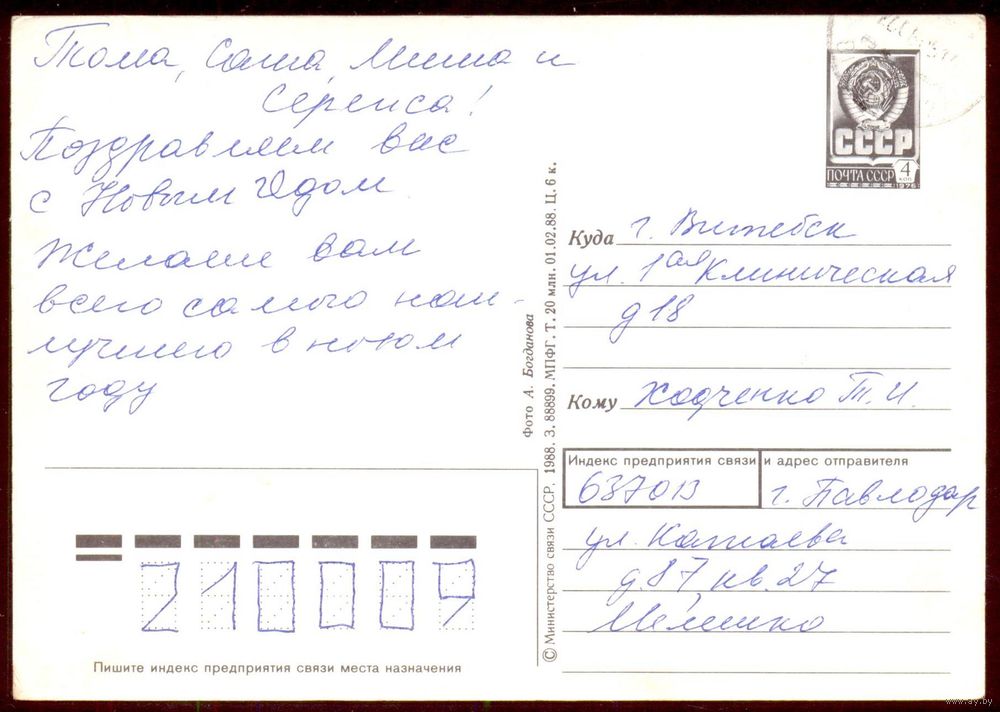 Тома, Саша, Миша и
Сережа!
Поздравляем вас
с Новым Годом
Желаем вам
всего самого наи-
лучшего в новом
году
СССР
ПОЧТА СССР
4
КОП
1976
Куда г. Витебск
ул. 1ая Клиническая
д 18
Кому Ходченко Т. И.
Индекс предприятия связи и адрес отправителя
637013 г. Павлодар
ул. Катаева
д. 87, кв. 27
© Министерство связи СССР. 1988. З. 88899. МПФГ. Т. 20 млн. 01.02.88. Ц. 6 к.
Фото А. Богданова
210009
Пишите индекс предприятия связи места назначения
www.ay.by